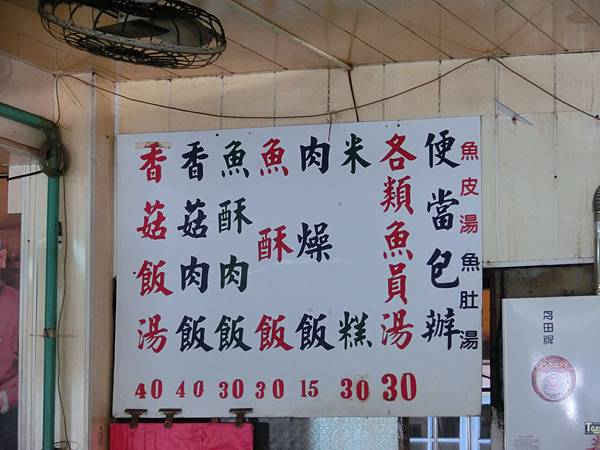 魚皮湯 魚肚湯
便當包辦
各類魚員湯 30
米糕 30
肉燥飯 15
魚酥飯 30
魚酥肉飯 30
香菇肉飯 40
香菇飯湯 40
多田牌